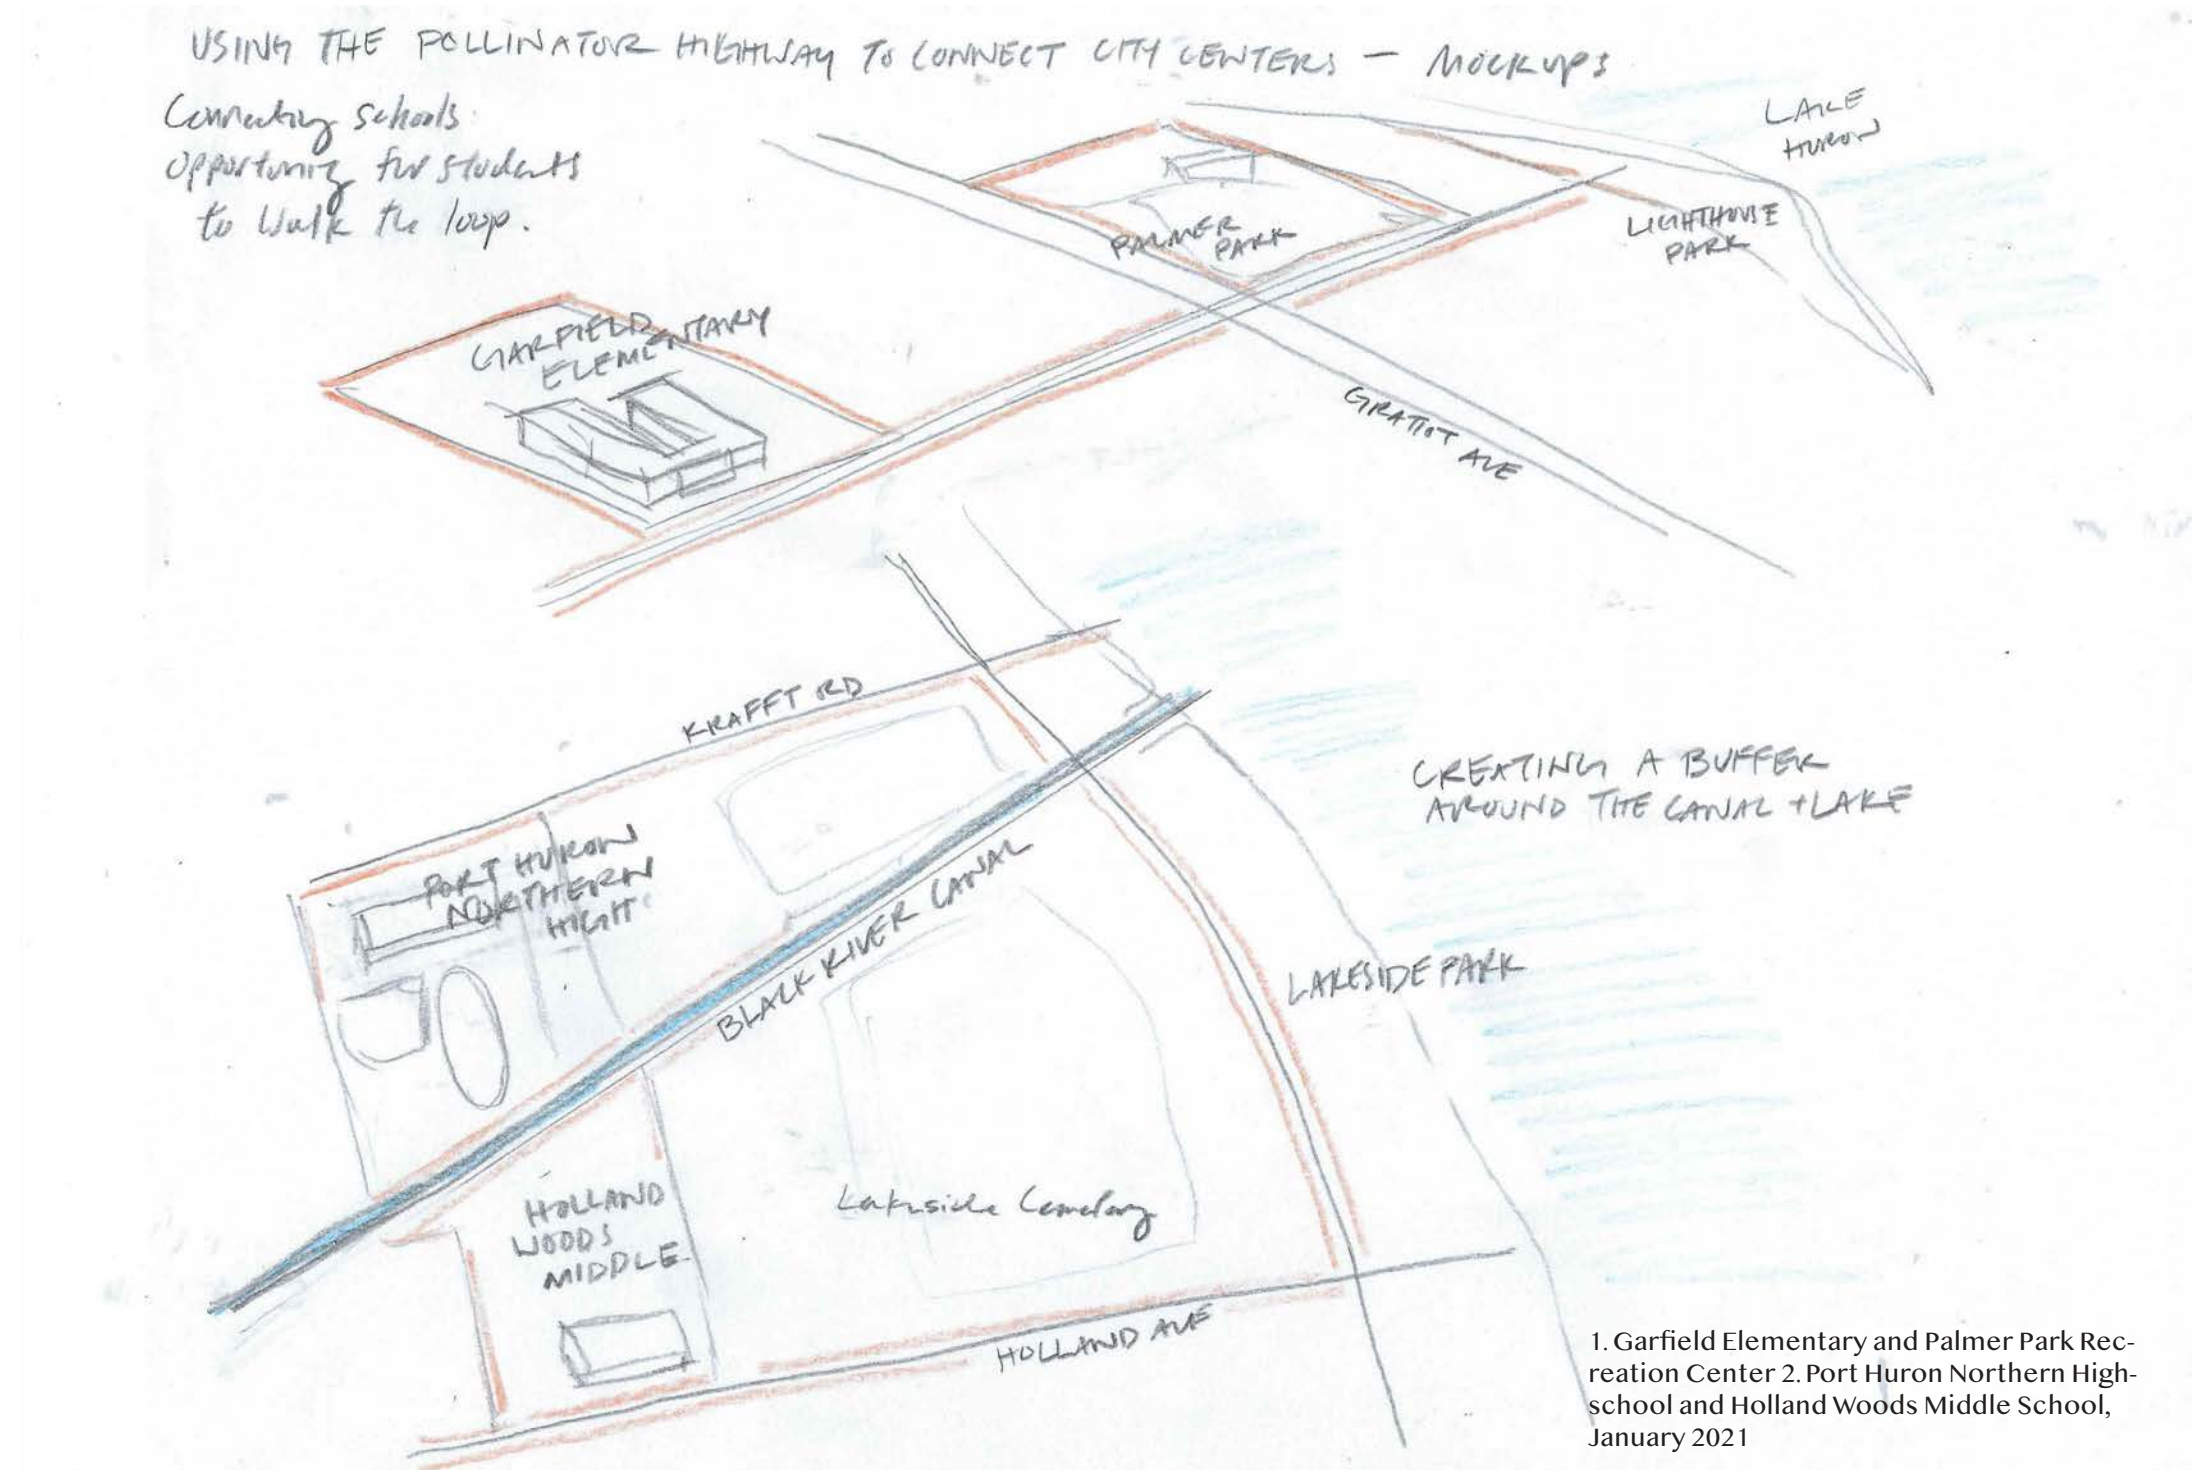 USING THE POLLINATOR HIGHWAY TO CONNECT CITY CENTERS — MOCKUPS
Connecting schools
opportunity for students
to walk the loop.
LAKE
HURON
LIGHTHOUSE
PARK
PALMER
PARK
GARFIELD
ELEMENTARY
GRATIOT AVE
KRAFFT RD
CREATING A BUFFER
AROUND THE CANAL + LAKE
PORT HURON
NORTHERN
HIGH
BLACK RIVER CANAL
LAKESIDE PARK
HOLLAND
WOODS
MIDDLE
Lakeside Cemetary
HOLLAND AVE
1. Garfield Elementary and Palmer Park Rec-
reation Center 2. Port Huron Northern High-
school and Holland Woods Middle School,
January 2021